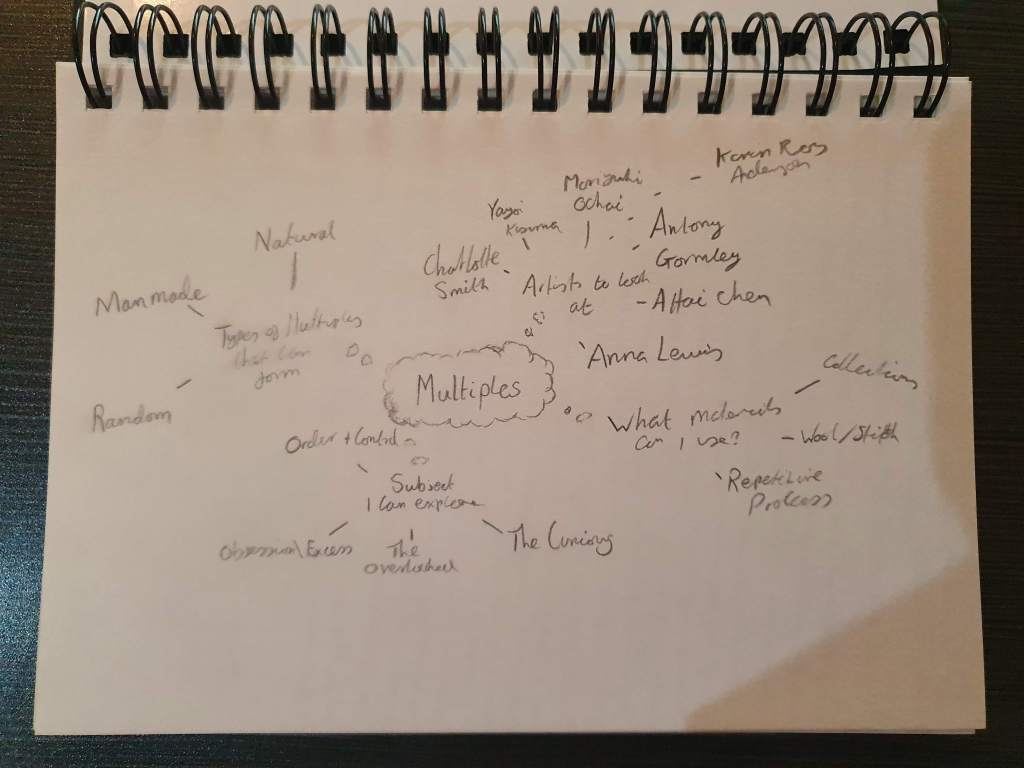 Karen Rees
Yayoi
Kusuma
Ochai
Antony
Gormley
Natural
Charlotte
Smith
Artists to look
at
- Attai Chen
Manmade
Types of Multiples
that Can
form
Anna Lewis
Multiples
Random
Collections
What materials
Can I use?
- Wool/
Order + Control
Subject
I Can explore
Repetitive
Process
Obsession\Excess
The
The Curious